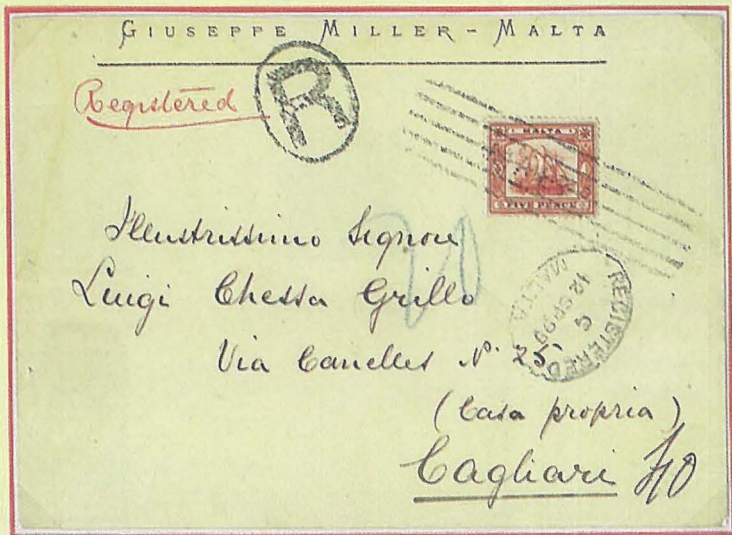 GIUSEPPE MILLER - MALTA
Registered
R
MALTA
FIVE PENCE
Illustrissimo Signore
Luigi Chessa Grillo
Via Canelles N. 25
(Casa propria)
Cagliari
REGISTERED
MALTA